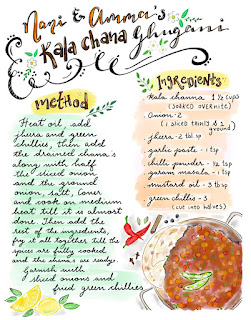 Nani & Amma's
Kala Chana Ghugani
method
Heat oil, add
jheera and green
chillies, then add
the drained chana's
along with half
the sliced onion
and the ground
onion, salt, cover
and cook on medium
heat till it is almost
done. Then add the
rest of the ingredients,
fry it all together till the
spices are fully cooked
and the chana's are ready.
Garnish with
sliced onions and
fried green chillies
Ingredients
Kala channa 1 ½ cups
(soaked overnite)
Onion - 2
(1 sliced thinly & 1
ground)
Jheera - 2 tbl sp
garlic paste - 1 tsp
chilli powder - ½ tsp
garam masala - 1 tsp
mustard oil - 3 tbsp
green chillis - 3
(cut into halves)